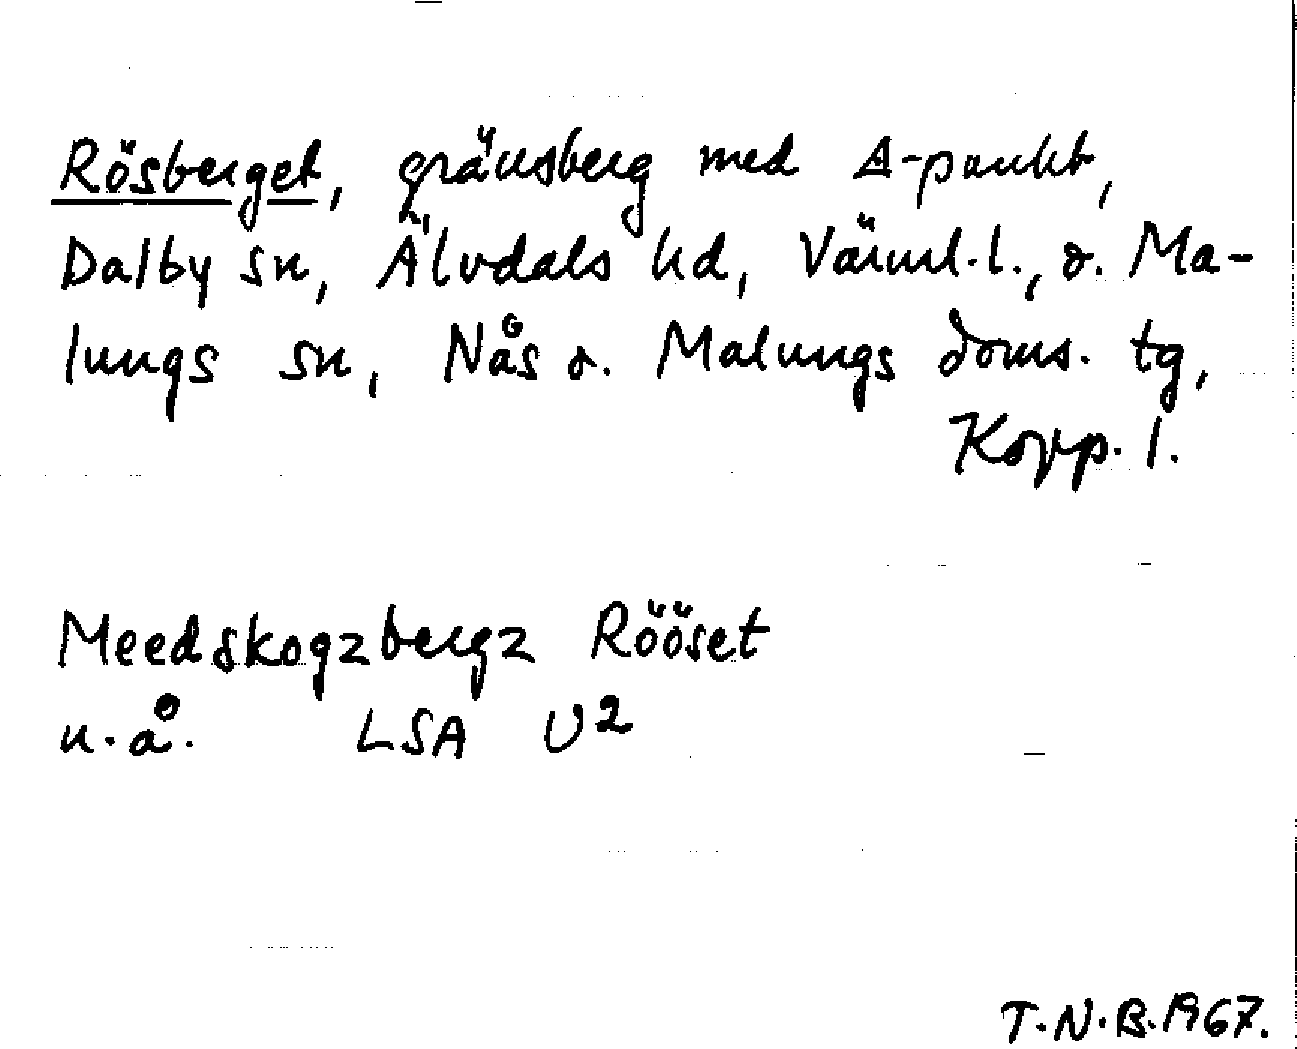 Rösberget, gränsberg med Δ-punkt,
Dalby sn, Älvdals hd, Värml.l., o. Ma-
lungs sn, Nås o. Malungs doms. tg,
Kopp. l.
Meedskogzbergz Rööset
u.å. LSA U2
T.N.B.1967.